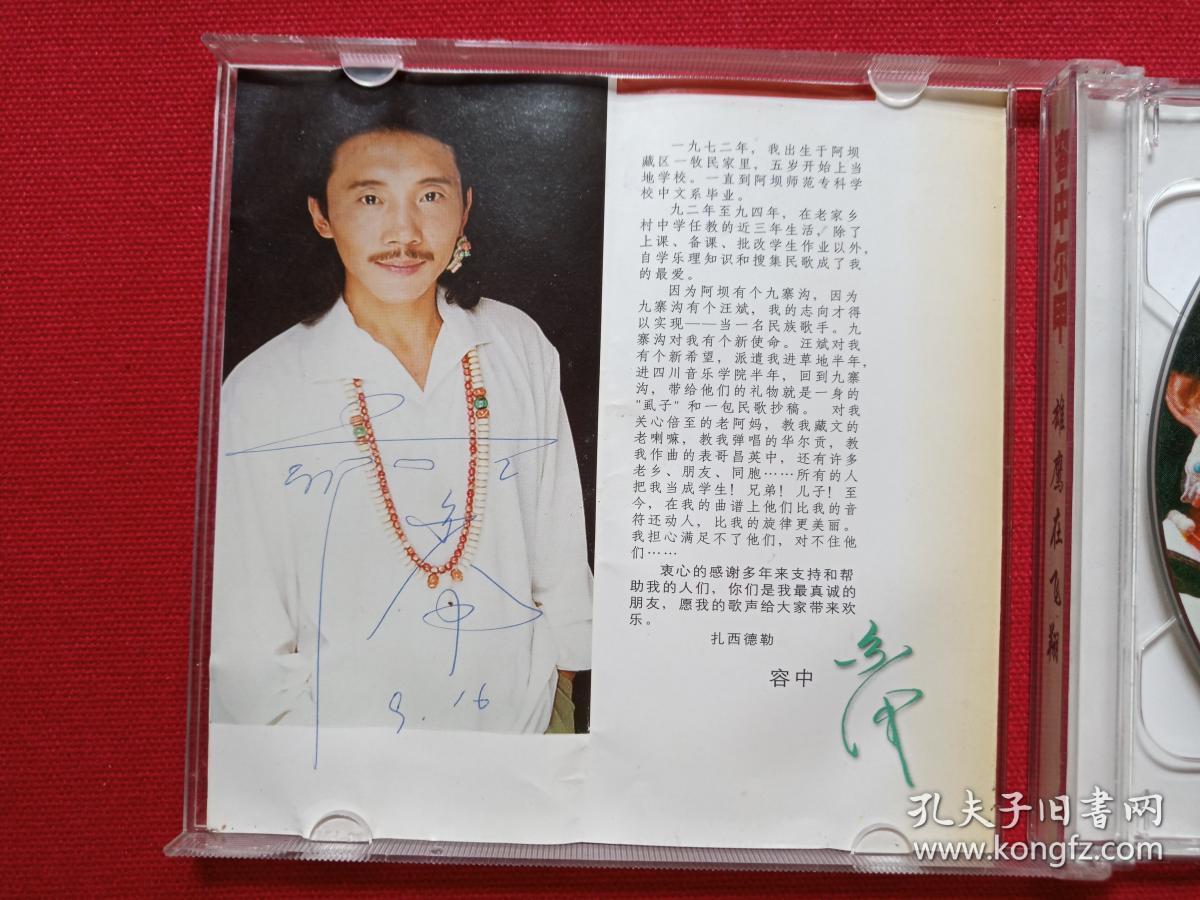 一九七二年，我出生于阿坝
藏区一牧民家里，五岁开始上当
地学校。一直到阿坝师范专科学
校中文系毕业。
九二年至九四年，在老家乡
村中学任教的近三年生活，除了
上课、备课、批改学生作业以外，
自学乐理知识和搜集民歌成了我
的最爱。
因为阿坝有个九寨沟，因为
九寨沟有个汪斌，我的志向才得
以实现——当一名民族歌手。九
寨沟对我有个新使命。汪斌对我
有个新希望，派遣我进草地半年，
进四川音乐学院半年，回到九寨
沟，带给他们的礼物就是一身的
"虱子"和一包民歌抄稿。 对我
关心倍至的老阿妈，教我藏文的
老喇嘛，教我弹唱的华尔贡，教
我作曲的表哥昌英中，还有许多
老乡、朋友、同胞……所有的人
把我当成学生！兄弟！儿子！至
今，在我的曲谱上他们比我的音
符还动人，比我的旋律更美丽。
我担心满足不了他们，对不住他
们……
衷心的感谢多年来支持和帮
助我的人们，你们是我最真诚的
朋友，愿我的歌声给大家带来欢
乐。
扎西德勒
容中
9.16
容中尔甲 雄鹰在飞翔
孔夫子旧书网
www.kongfz.com